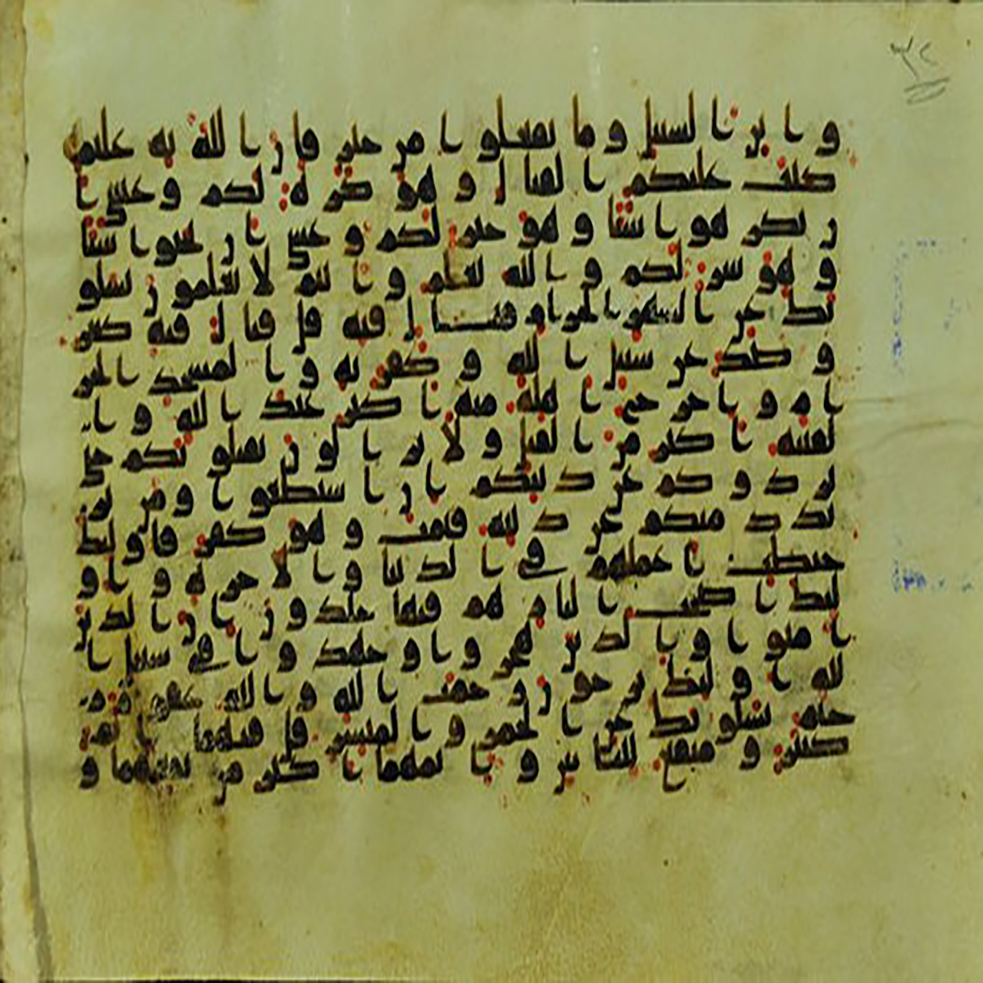 ٣٢
و ابن السبيل و ما تفعلوا من خير فان الله به عليم
كتب عليكم القتال و هو كره لكم و عسى ا
ن تكرهوا شيا و هو خير لكم و عسى ان تحبوا شيا
و هو شر لكم و الله يعلم و انتم لا تعلمون يسلو
نك عن الشهر الحرام قتال فيه قل قتال فيه كبير
و صد عن سبيل الله و كفر به و المسجد الحر
ام و اخراج اهله منه اكبر عند الله و ا
لفتنة اكبر من القتل و لا يزالون يقتلونكم حتى
يردوكم عن دينكم ان استطعوا و من ير
تدد منكم عن دينه فيمت و هو كفر فاولئك
حبطت اعملهم في الدنيا و الاخرة و او
لئك اصحب النار هم فيها خلدون ان الذين
امنوا و الذين هجروا و جهدوا في سبيل ا
لله اولئك يرجون رحمت الله و الله غفور ر
حيم يسلونك عن الخمر و الميسر قل فيهما اثم
كبير و منفع للناس و اثمهما اكبر من نفعهما و